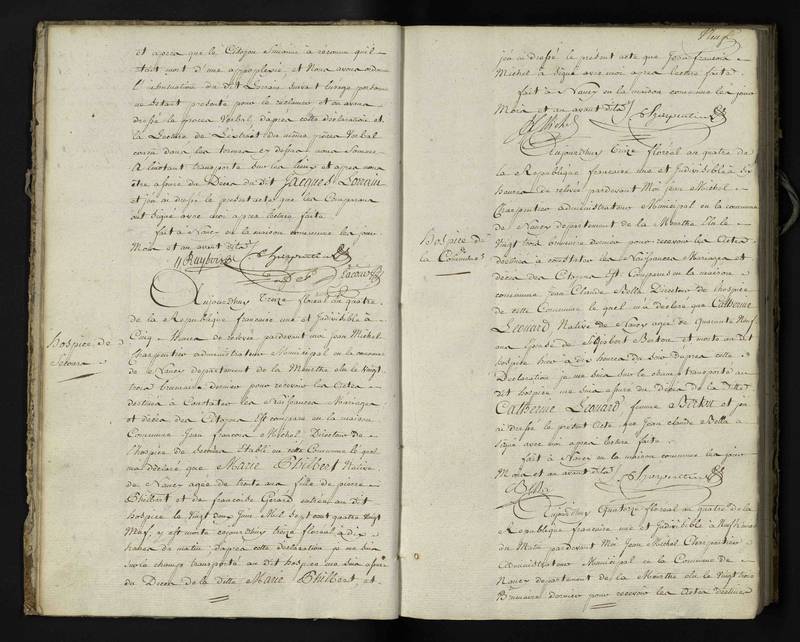 et après que le Citoyen Simonin a reconnu qu'il
était mort d'une appoplexie, et Nous avons ordonné
l'inhumation du dit Lorrain suivant l'usage personne
ne s'étant présenté pour le réclamer et en avons
dressé le procès Verbal, d'après cette déclaration et
la Lecture de l'extrait du même procès Verbal
conçu dans les termes ci dessus nous sommes
à l'instant transporté sur les lieux et après nous
être assuré du Décès du dit Jacques Lorrain
et j'ai ai dressé le present acte que les Comparans
ont signé avec moi après lecture faite
fait à Nancy en la maison commune les jour
Mois et an avant dits
Charpentier
Aujourdhuy treize floréal an quatre
de la Republique française une et Judivisible à
Hospice de
Secours
Cinq heures de relevée pardevant moi jean Michel
Charpentier administrateur Municipal en la commune
de Nancy departement de la Meurthe élu le Vingt
trois brumaire dernier pour recevoir les Actes
destinés à Constater les Naissances Mariages
et décès des Citoyens Est comparu en la maison
Commune Jean francois Michel Directeur de
l'hospice de Secours Etabli en cette Commune le quel
m'a déclaré que Marie Philbert Native
de Nancy agée de trente ans fille de pierre
Philbert et de francoise Gerard entrée au dit
hospice le Vingt Juin Mil Sept cent quatre Vingt
Neuf, y est morte cejourdhuy treize floréal à dix
heures du matin d'après cette déclaration je me suis
sur le champ transporté au dit hospice me suis assuré
du Décès de la ditte Marie Philbert, et
Neuf
j'ai ai dressé le present acte que Jean francois
Michel a signé avec moi après lecture faite.
fait à Nancy en la maison commune les jour
Mois et an avant dits
Michel Charpentier
Aujourdhuy treize floréal an quatre de
la Republique française une et Judivisible à six
heures de relevée pardevant Moi Jean Michel
Charpentier administrateur Municipal en la commune
de Nancy departement de la Meurthe élu le
Hospice de
la Commune
Vingt trois brumaire dernier pour recevoir les Actes
destinés à constater les Naissances Mariages et
décès des Citoyens Est Comparu en la maison
commune Jean Claude Directeur de l'hospice
de cette Commune le quel m'a déclaré que Catherine
Leonard Native de Nancy agée de Quarante Neuf
ans Epouse de Bertin est morte au dit
hospice hier à dix heures du soir d'après cette
Declaration je me suis sur le champ transporté au
dit hospice me suis assuré du décès de la ditte
Catherine Leonard femme Bertin et j'en
ai dressé le present Acte que Jean Claude a
signé avec moi après lecture faite
fait à Nancy en la maison commune les jour
Mois et an avant dits
Charpentier
Aujourdhuy Quatorze floréal an quatre de la
Republique française une et Judivisible à Neuf heures
du Matin pardevant Moi Jean Michel Charpentier
Administrateur Municipal en la Commune de
Nancy departement de la Meurthe élu le Vingt trois
Brumaire dernier pour recevoir les Actes destinés